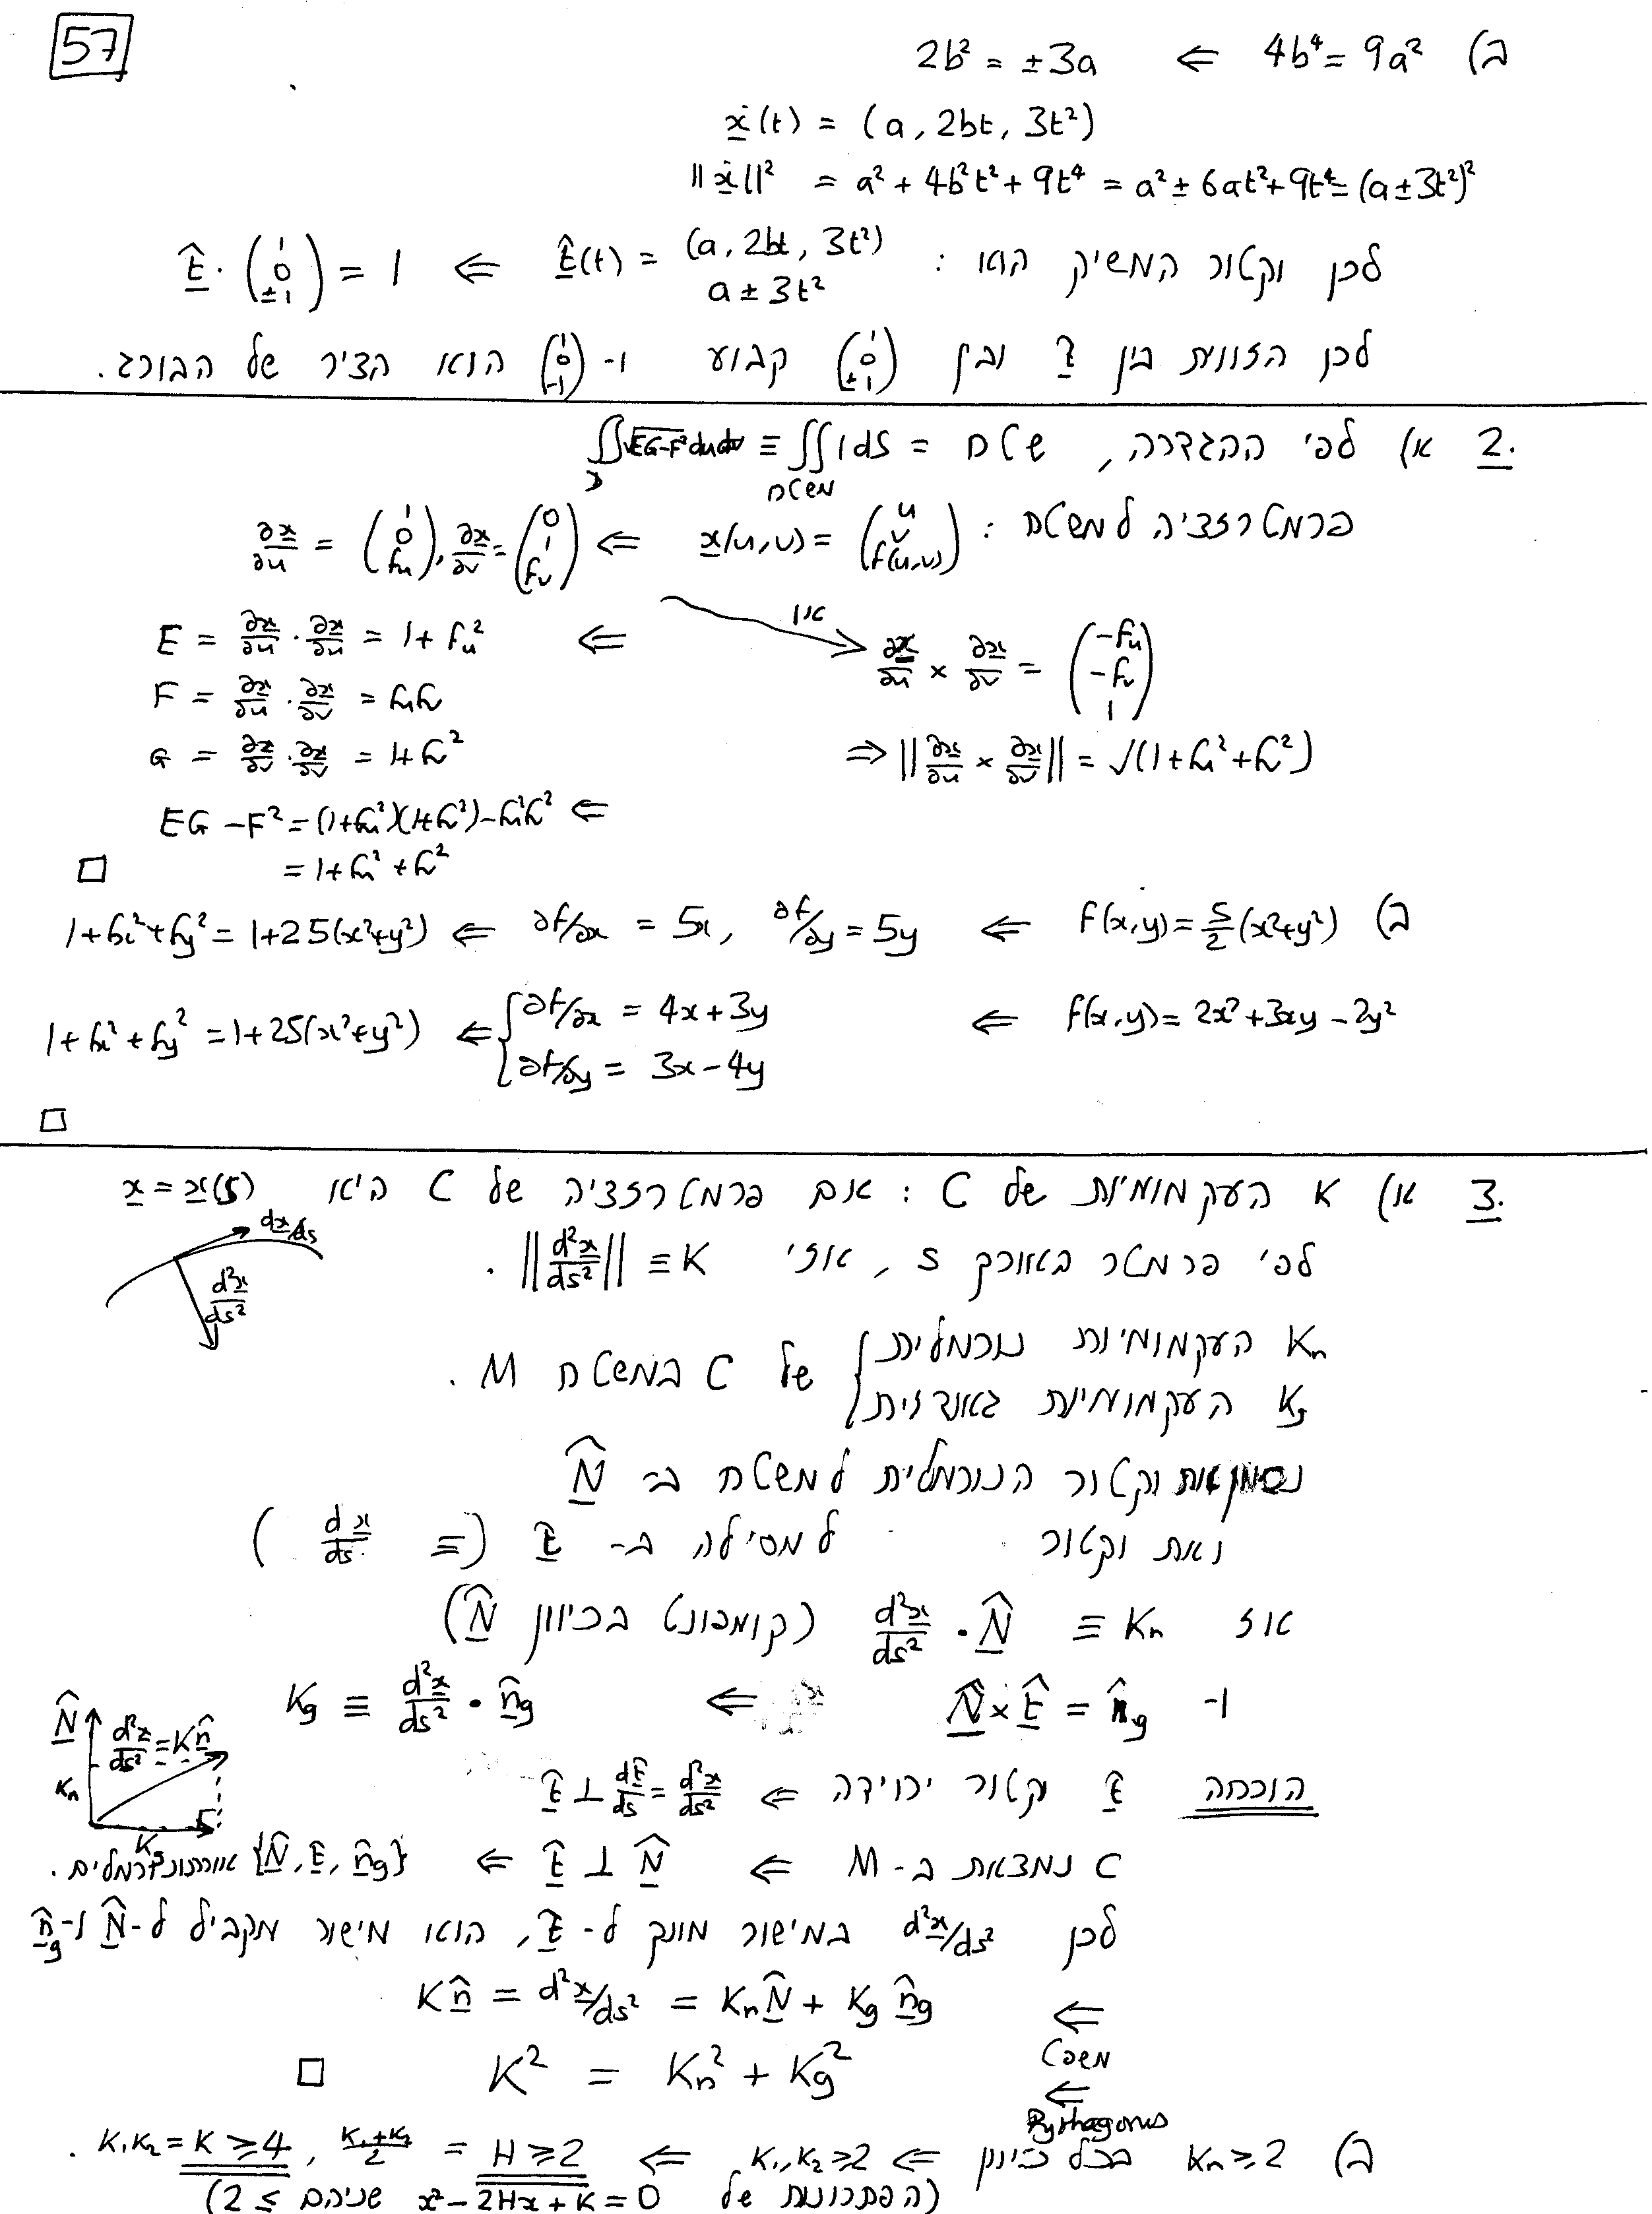 57
ב) 4b⁴ = 9a² ⇐ 2b² = ±3a
ẋ(t) = (a, 2bt, 3t²)
||ẋ||² = a² + 4b²t² + 9t⁴ = a² ± 6at² + 9t⁴ = (a ± 3t²)²
לכן וקטור המשיק הוא : t̂(t) = (a, 2bt, 3t²) / (a ± 3t²) ⇐ t̂ · (1, 0, ±1) = 1
לכן הזווית בין t̂ ובין (1, 0, ±1) קבוע ו- (1, 0, -1) הוא הציר של הבורג.
2. א) לפי ההגדרה, שטח = ∬ 1dS ≡ ∬ √EG-F² dudv
משטח D
פרמטרזציה למשטח : x(u,v) = (u, v, f(u,v)) ⇐ ∂x/∂u = (1, 0, fu), ∂x/∂v = (0, 1, fv)
או
E = ∂x/∂u · ∂x/∂u = 1 + fu² ⇐
∂x/∂u × ∂x/∂v = (-fu, -fv, 1)
F = ∂x/∂u · ∂x/∂v = fufv
G = ∂x/∂v · ∂x/∂v = 1 + fv²
⇒ ||∂x/∂u × ∂x/∂v|| = √(1 + fu² + fv²)
EG - F² = (1+fu²)(1+fv²) - fu²fv² ⇐
= 1 + fu² + fv²
□
ב) f(x,y) = 5/2 (x²+y²) ⇐ ∂f/∂x = 5x, ∂f/∂y = 5y ⇐ 1 + fx² + fy² = 1 + 25(x²+y²)
f(x,y) = 2x² + 3xy - 2y² ⇐ { ∂f/∂x = 4x + 3y ⇐ 1 + fx² + fy² = 1 + 25(x²+y²)
∂f/∂y = 3x - 4y
□
3. א) K העקמומיות של C : אם פרמטרזציה של C היא x = x(s)
לפי פרמטר באורך s, אזי K ≡ ||d²x/ds²|| .
dx/ds
d²x/ds²
Kn העקמומיות נורמלית
Kg העקמומיות גאודזית
של C במשטח M .
וקטור הנורמלית למשטח ב- N̂
ואת וקטור למסילה ב- t̂ (≡ dx/ds)
אז Kn ≡ d²x/ds² · N̂ (קומפוננט בכיוון N̂)
ו- N̂ × t̂ = n̂g ⇐ Kg ≡ d²x/ds² · n̂g
N̂
d²x/ds² = Kn̂
Kn
Kg
הוכחה t̂ וקטור יחידה ⇐ t̂ ⊥ dt̂/ds = d²x/ds²
C נמצאת ב- M ⇐ t̂ ⊥ N̂ ⇐ {N̂, t̂, n̂g} אורתונורמלים .
לכן d²x/ds² במישור מונך ל- t̂, הוא מישור מקביל ל- N̂ ו- n̂g
⇐ Kn̂ = d²x/ds² = KnN̂ + Kg n̂g
משפט
⇐ K² = Kn² + Kg² □
Pythagorus
ב) Kn ≥ 2 בכל כיוון ⇐ K₁, K₂ ≥ 2 ⇐ H ≥ 2 = (K₁+K₂)/2 , K₁K₂ = K ≥ 4 .
(הפתרונות של x² - 2Hx + K = 0 שניהם ≥ 2)